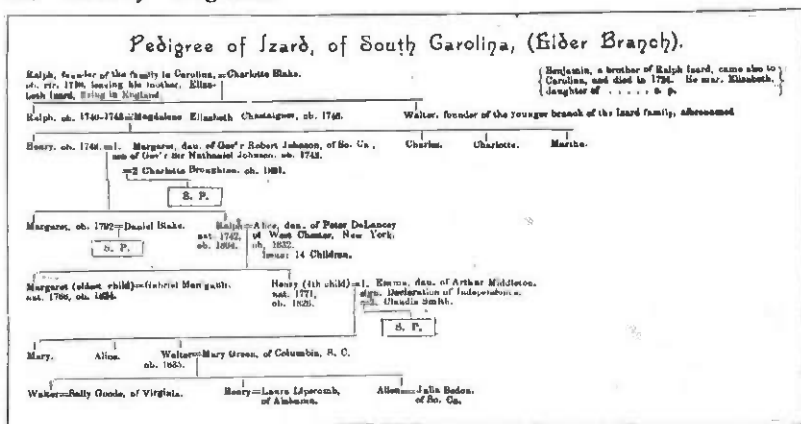 Pedigree of Izard, of South Carolina, (Elder Branch).
Ralph, founder of the family in Carolina,=Charlotte Blake.
ob. cir. leaving his mother, Eliza-
beth Izard, living in England.
Benjamin, a brother of Ralph Izard, came also to
Carolina, and died in 1724. He mar. Elizabeth,
daughter of . . . . . s. p.
Ralph, ob. 1740-1743=Magdalene Elizabeth Chastaigner, ob. 1746.
Walter, founder of the younger branch of the Izard family,
Henry, ob. 1748.=1. Margaret, dau. of Gov'r Robert Johnson, of So. Ca.,
son of Gov'r Sir Nathaniel Johnson. ob. 1743.
=2 Charlotte Broughton. ob.
Charles.
Charlotte.
Martha.
S. P.
Margaret, ob. 1792=Daniel Blake.
S. P.
Ralph=Alice, dau. of Peter DeLancey
nat. 1742, of West Chester, New York.
ob. 1804. ob. 1832.
Issue: 14 Children.
Margaret (eldest child)=Gabriel Manigault.
nat. 1768, ob. 1824.
Henry (4th child)=1. Emma, dau. of Arthur Middleton.
nat. 1771, sign. Declaration of Independence.
ob. 1826. =2. Claudia Smith.
S. P.
Mary.
Alice.
Walter=Mary Green, of Columbia, S. C.
ob. 1835.
Walter=Sally Goode, of Virginia.
Henry=Laura Lipscomb,
of Alabama.
Allen=Julia Bedon.
of So. Ca.